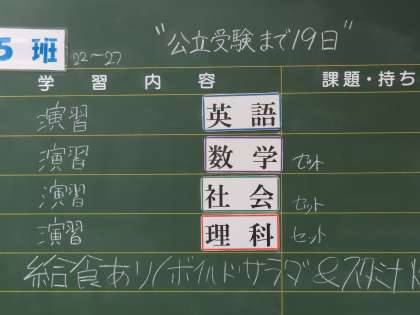 5 班 22～27 "公立受験まで19日"
学習内容 課題・持ち
演習 英語
演習 数学 セット
演習 社会 セット
演習 理科 セット
給食あり！ボイルドサラダ&スタミナ